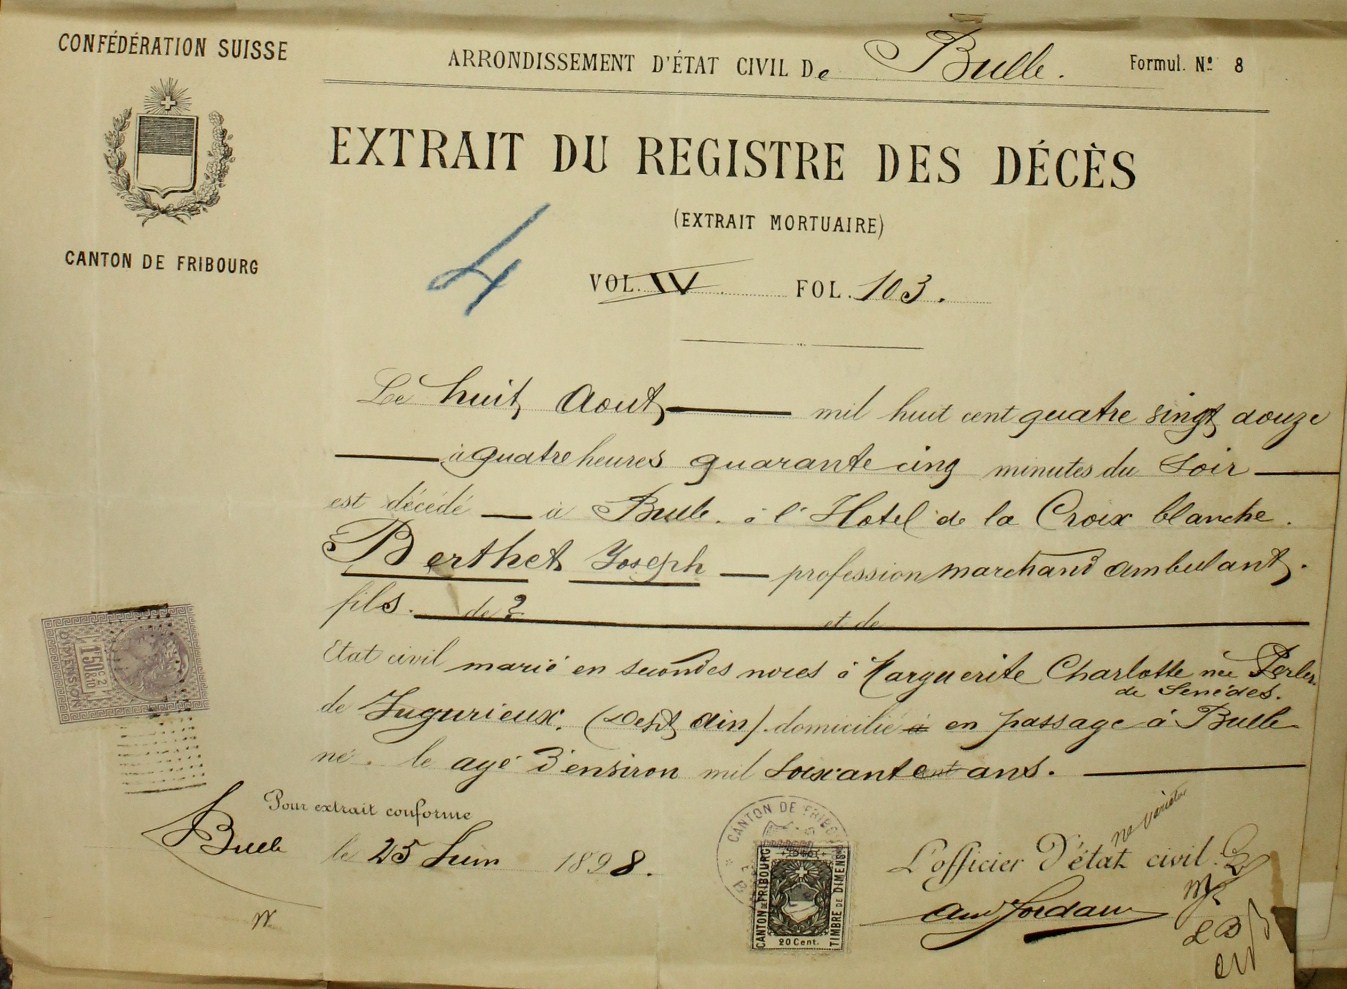 CONFÉDÉRATION SUISSE
CANTON DE FRIBOURG
ARRONDISSEMENT D'ÉTAT CIVIL De Bulle.
Formul. Nº 8
EXTRAIT DU REGISTRE DES DÉCÈS
(EXTRAIT MORTUAIRE)
4
VOL. IV FOL. 103.
Le huit Aout mil huit cent quatre vingt douze
à quatre heures quarante cinq minutes du Soir
est décédé à Bulle. à l'Hotel de la Croix blanche.
Berthet Joseph profession marchand ambulant.
fils. de ? et de
Etat civil marié en secondes noces à Marguerite Charlotte née Perler
de Senèdes.
de Jugurieux. (Dept Ain). domicilié à en passage à Bulle
né. le agé d'environ mil soixante ans.
Pour extrait conforme
Bulle le 25 Juin 1898.
L'officier d'état civil.
ne varietur
Jordan
CANTON DE FRIBOURG
CANTON DE FRIBOURG
TIMBRE DE DIMENS
20 Cent.
DIMENSION
1f50c
LB